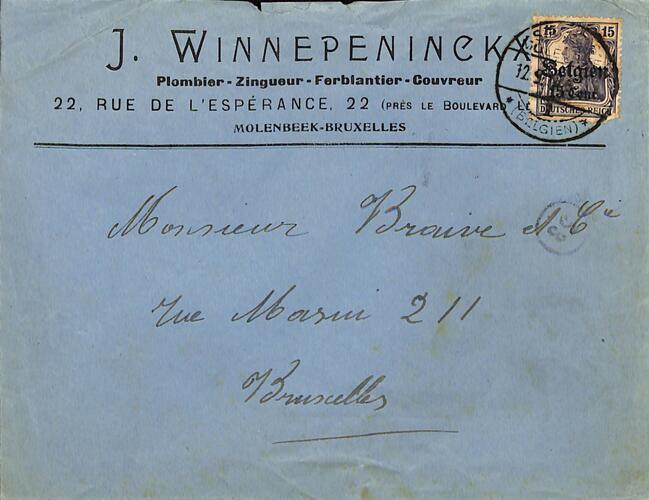 J. WINNEPENINCKX
Plombier - Zingueur - Ferblantier - Couvreur
22, RUE DE L'ESPÉRANCE, 22 (PRÈS LE BOULEVARD LE
MOLENBEEK-BRUXELLES
15 15
Belgien
15 Cent.
DEUTSCHES REICH
12.
* (BELGIEN) *
Monsieur Braive & Cie
rue Masui 211
Bruxelles